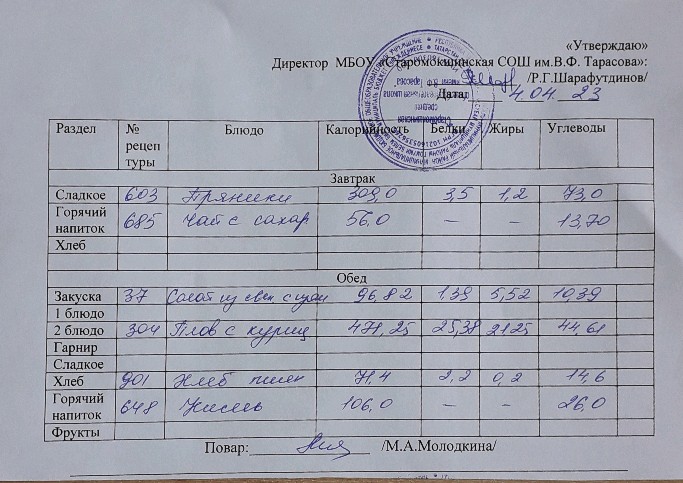 «Утверждаю»
Директор МБОУ «Старомокшинская СОШ им.В.Ф. Тарасова»:
/Р.Г.Шарафутдинов/
Дата: 4.04.23
Раздел № рецептуры Блюдо Калорийность Белки Жиры Углеводы
Завтрак
Сладкое 603 Пряники 309,0 3,5 1,2 73,0
Горячий напиток 685 Чай с сахар 56,0 – – 13,70
Хлеб
Обед
Закуска 37 Салат из свек с 96,82 1,39 5,52 10,39
1 блюдо
2 блюдо 304 Плов с куриц 471,25 25,38 21,25 44,61
Гарнир
Сладкое
Хлеб 901 Хлеб пшен 71,4 2,2 0,2 14,6
Горячий напиток 648 Кисель 106,0 – – 26,0
Фрукты
Повар: /М.А.Молодкина/